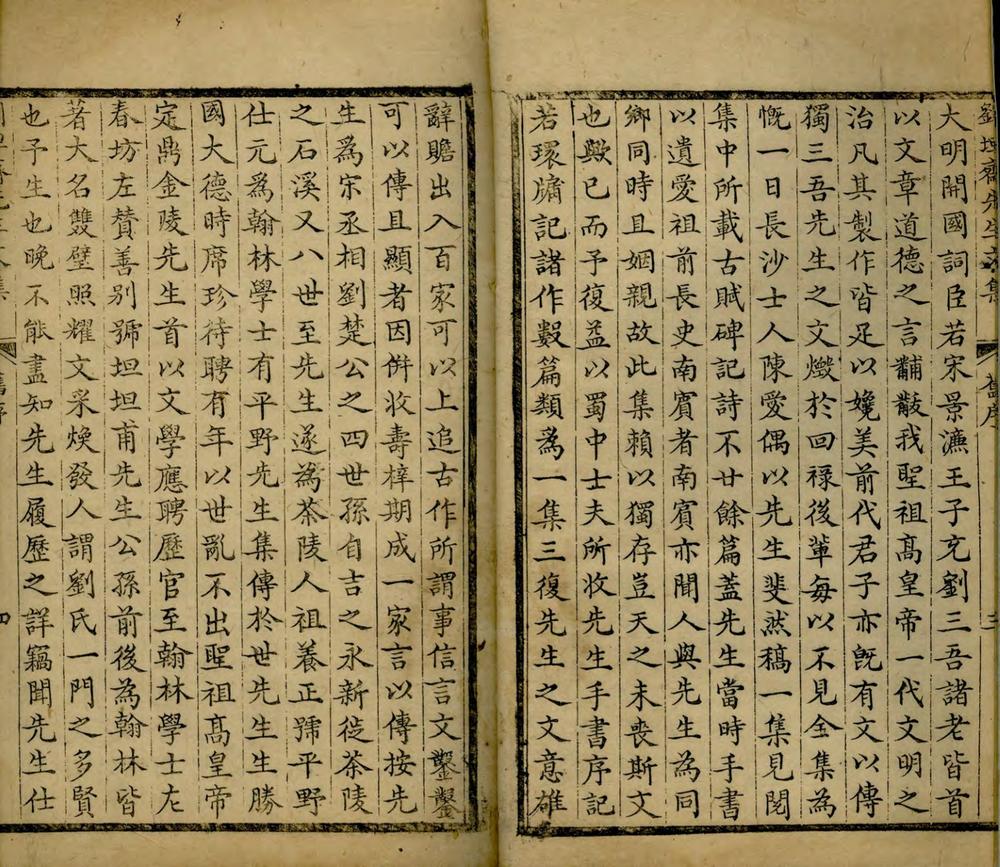 劉坦齋先生文集 舊序 三
大明開國詞臣若宋景濂王子充劉三吾諸老皆首
以文章道德之言黼黻我聖祖高皇帝一代文明之
治凡其製作皆足以媲美前代君子亦既有文以傳
獨三吾先生之文燬於回祿後輩每以不見全集為
慨一日長沙士人陳愛偶以先生斐然稿一集見閱
集中所載古賦碑記詩不廿餘篇蓋先生當時手書
以遺愛祖前長史南賓者南賓亦聞人與先生為同
鄉同時且姻親故此集賴以獨存豈天之未喪斯文
也歟已而予復益以蜀中士夫所收先生手書序記
若環牗記諸作數篇類為一集三復先生之文意雄
辭贍出入百家可以上追古作所謂事信言文鑿鑿
可以傳且顯者因併收壽梓期成一家言以傳按先
生爲宋丞相劉楚公之四世孫自吉之永新徙茶陵
之石溪又八世至先生遂為茶陵人祖養正號平野
仕元爲翰林學士有平野先生集傳於世先生生勝
國大德時席珍待聘有年以世亂不出聖祖高皇帝
定鼎金陵先生首以文學應聘歷官至翰林學士左
春坊左贊善别號坦坦甫先生公孫前後為翰林皆
著大名雙璧照耀文采煥發人謂劉氏一門之多賢
也予生也晚不能盡知先生履歷之詳竊聞先生仕
四